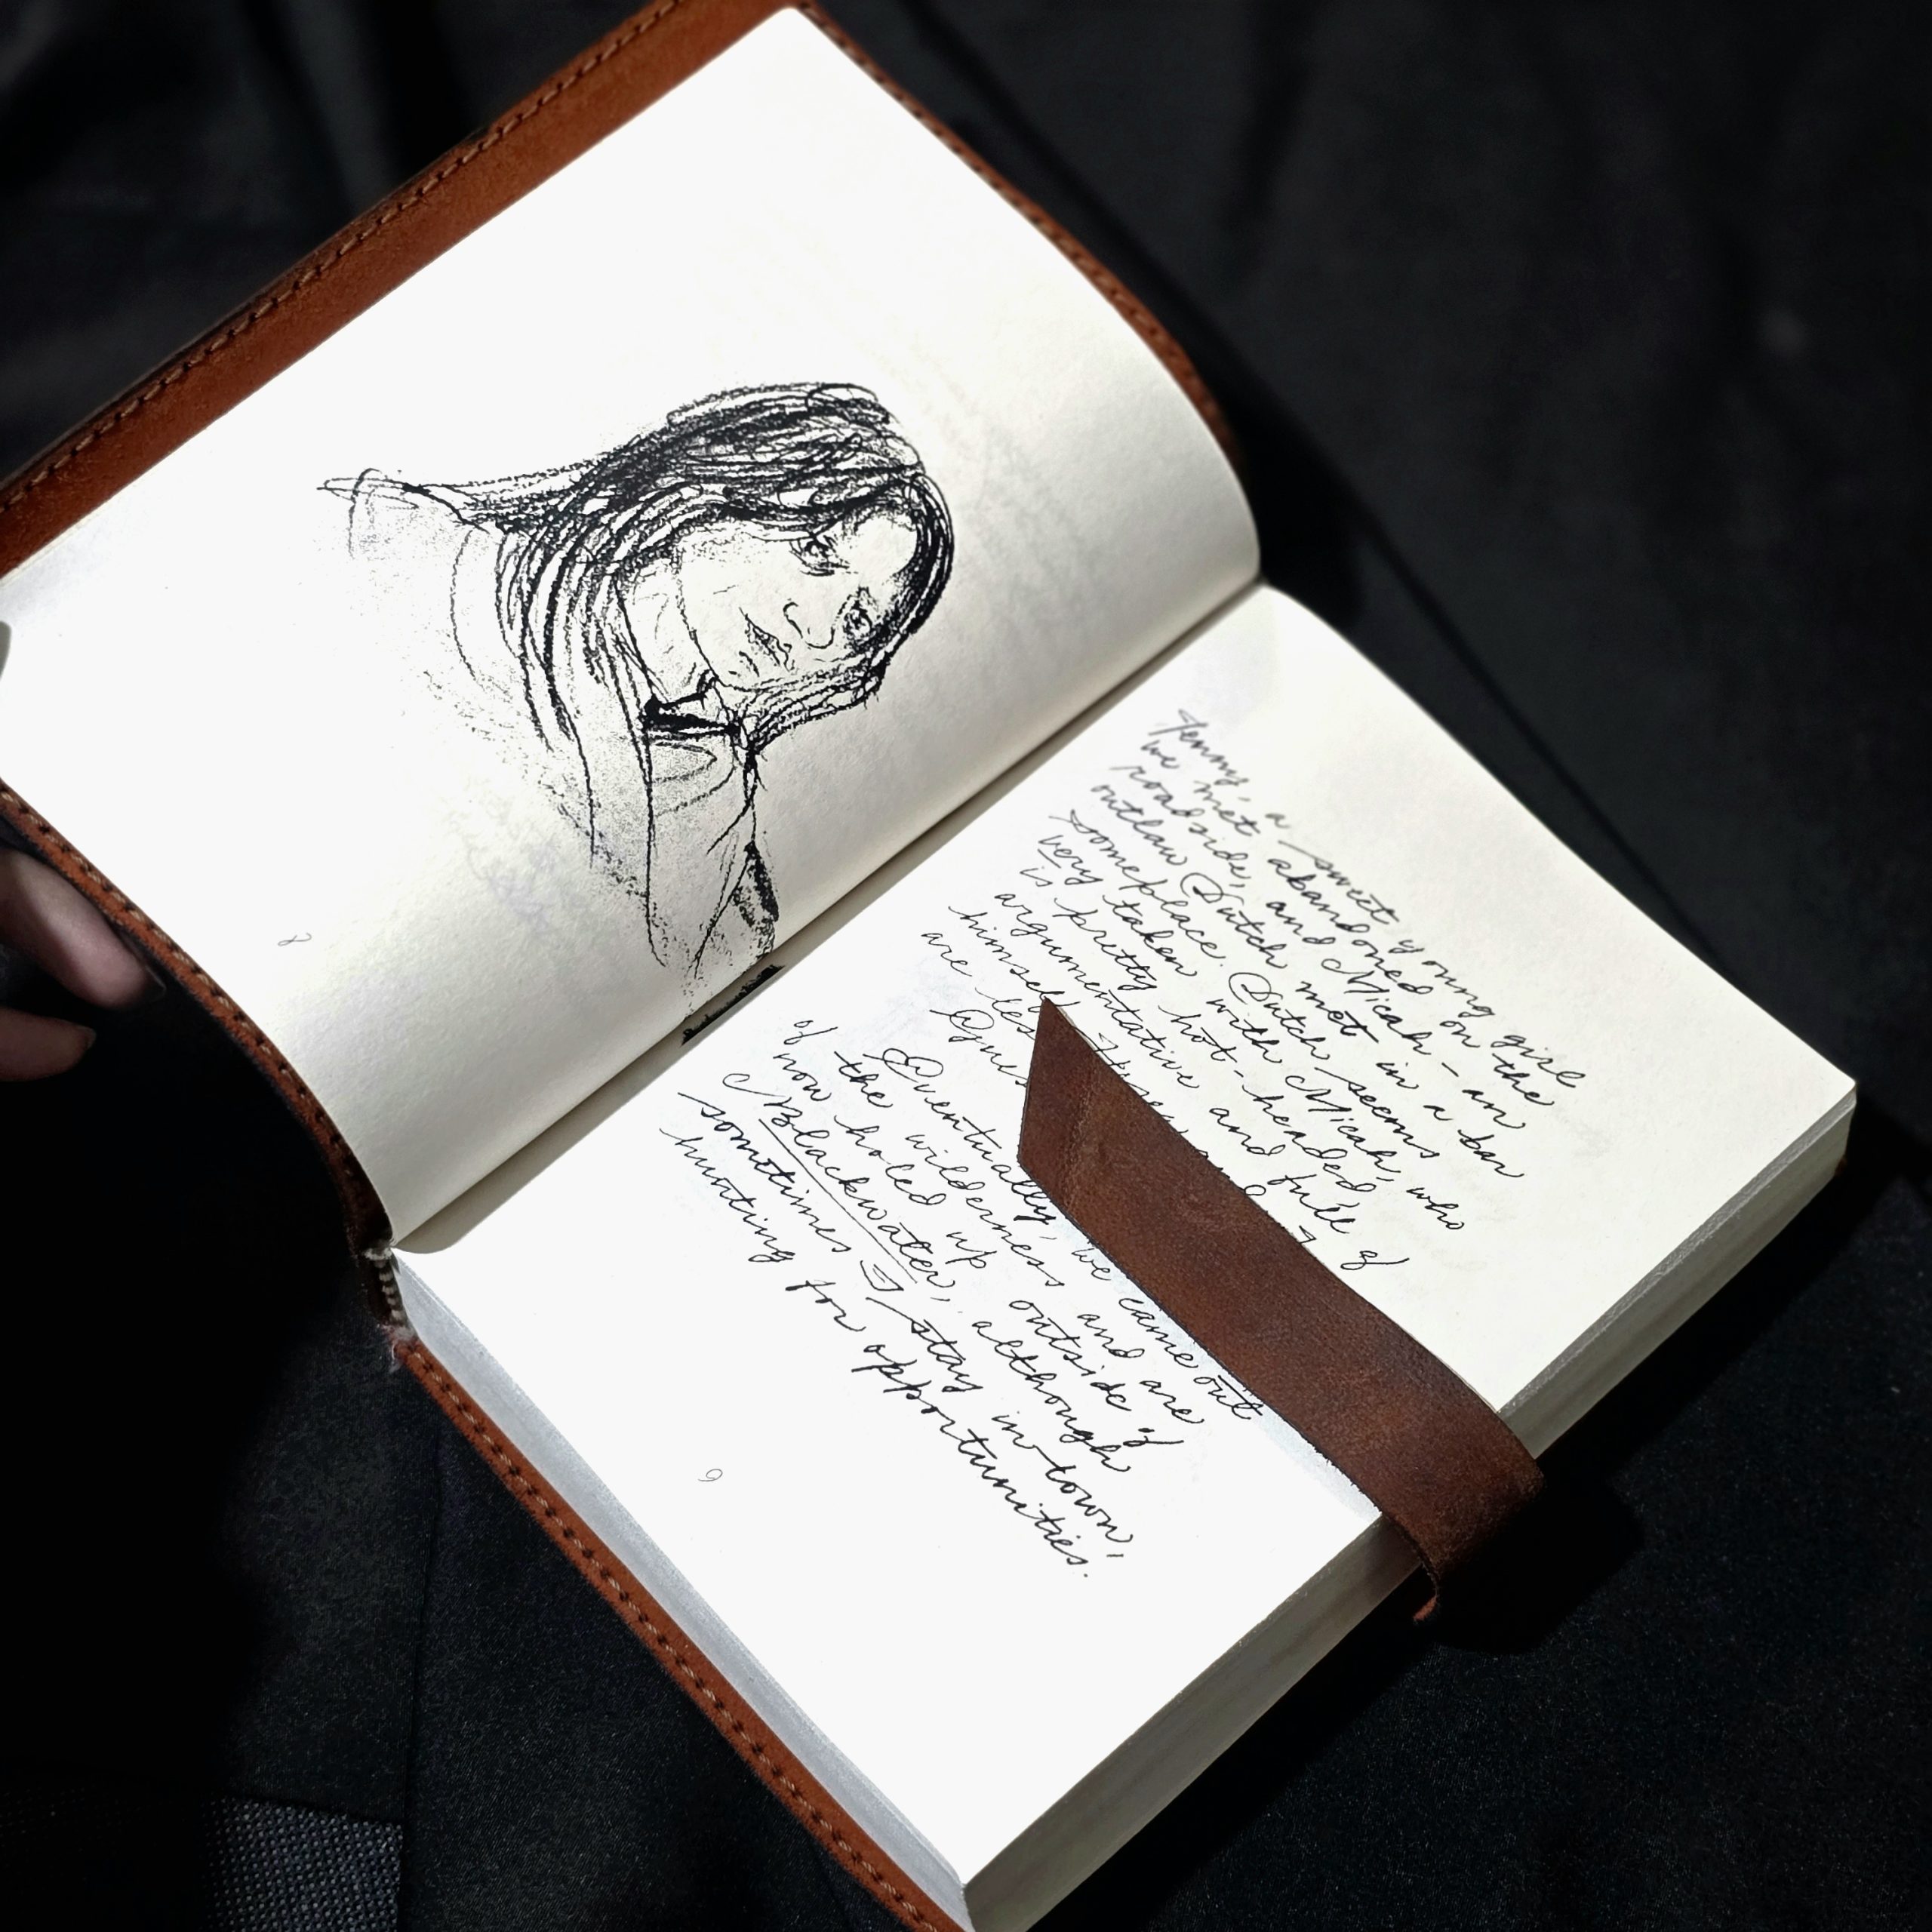 8
Jenny, a sweet young girl
we met abandoned on the
roadside, and Micah - an
outlaw Dutch met in a bar
someplace. Dutch seems
very taken with Micah, who
is pretty hot-headed,
argumentative and full of
himself
are
Eventually, we came out
of the wilderness and are
now holed up outside of
Blackwater, although
sometimes I stay in town,
hunting for opportunities.
9